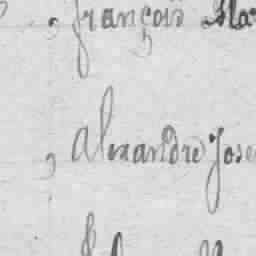 , françois Ma
, alexandre Jose